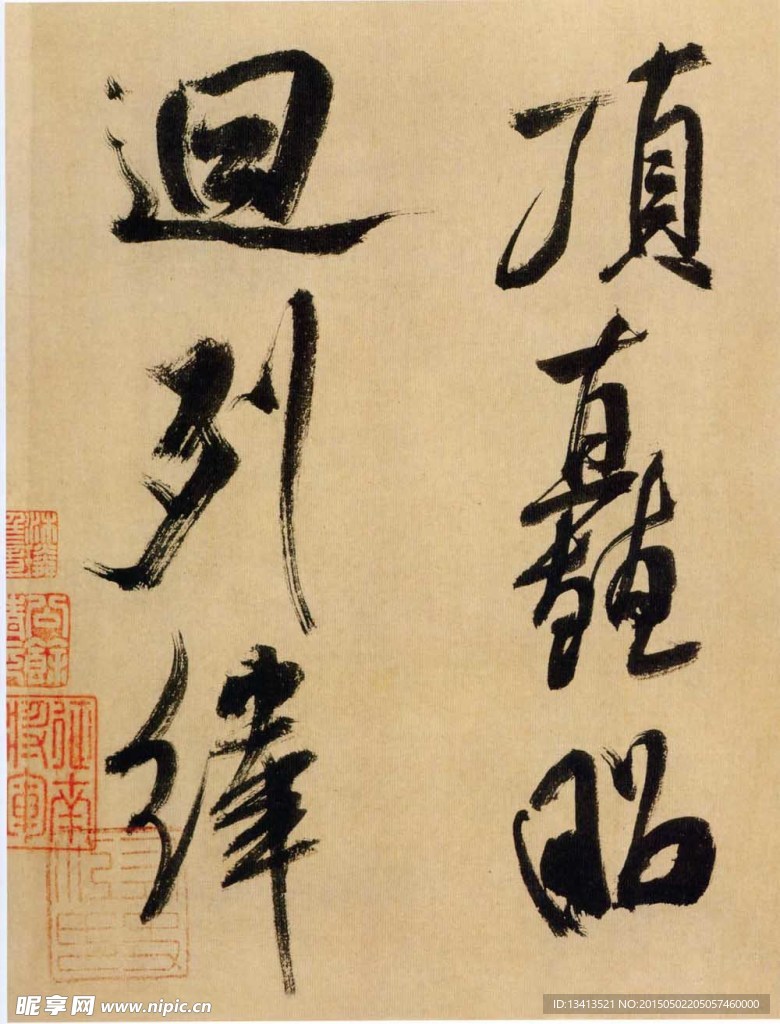 頂矗昭
迴列緯
公餘
清玩
征南
將軍
昵享网 www.nipic.cn
ID:13413521 NO:20150502205057460000